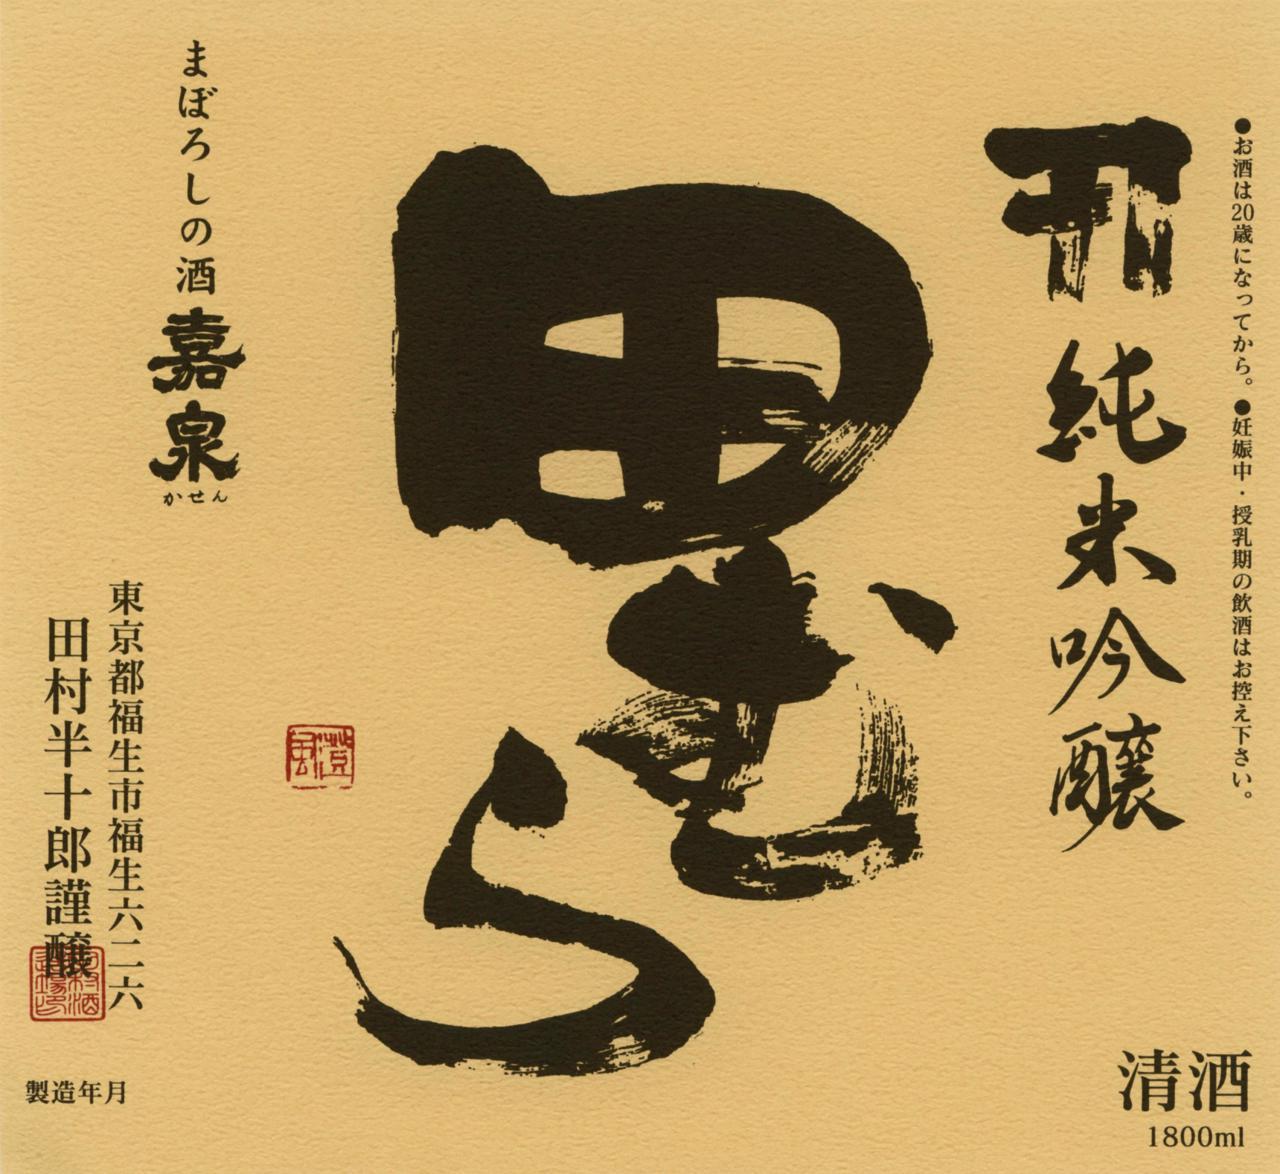 ●お酒は20歳になってから。●妊娠中・授乳期の飲酒はお控え下さい。
純米吟醸
田むら
澄風
まぼろしの酒 嘉泉
かせん
東京都福生市福生六二六
田村半十郎謹醸
製造年月
清酒
1800ml